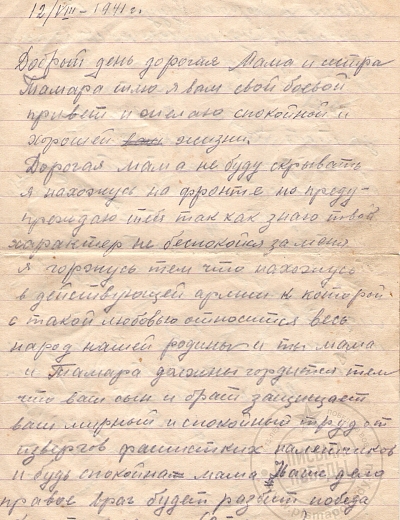 12/VIII - 1941 г.
Добрый день дорогие Мама и сестра
Тамара шлю я вам свой боевой
привет и желаю спокойной и
хорошей жизни.
Дорогая мама не буду скрывать
я нахожусь на фронте но преду-
преждаю тебя так как знаю твой
характер не беспокойся за меня
я горжусь тем что нахожусь
в действующей армии к которой
с такой любовью относится весь
народ нашей родины и ты мама
и Тамара должны гордится тем
что ваш сын и брат защищает
ваш мирный и спокойный труд от
извергов фашистких
и будь спокойна мама Наше дело
правое враг будет разбит победа